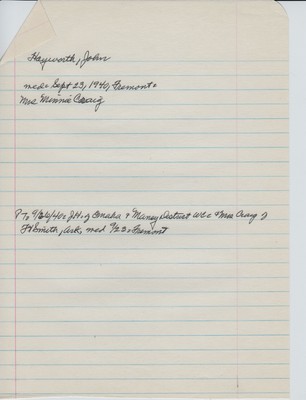 Hayworth, John
med = Sept 23, 1940, Fremont =
Mrs Minnie Craig
9/26/40 = J.H. of Omaha + Maney District WC = + Mrs Craig of
Ft Smith, Ark, med 9/23 = Fremont